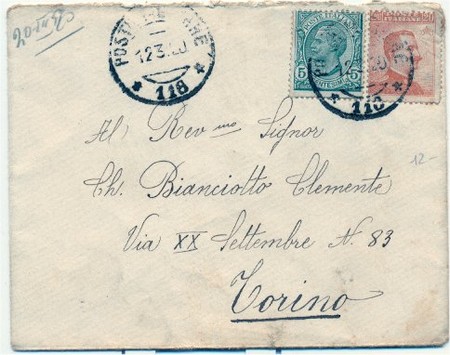 POSTE ITALIANE
5 5
20
POSTA MILITARE
12.3.20
118
POSTA MILITARE
118
Al Rev.mo Signor
Ch. Bianciotto Clemente
Via XX Settembre N. 83
Torino
12-